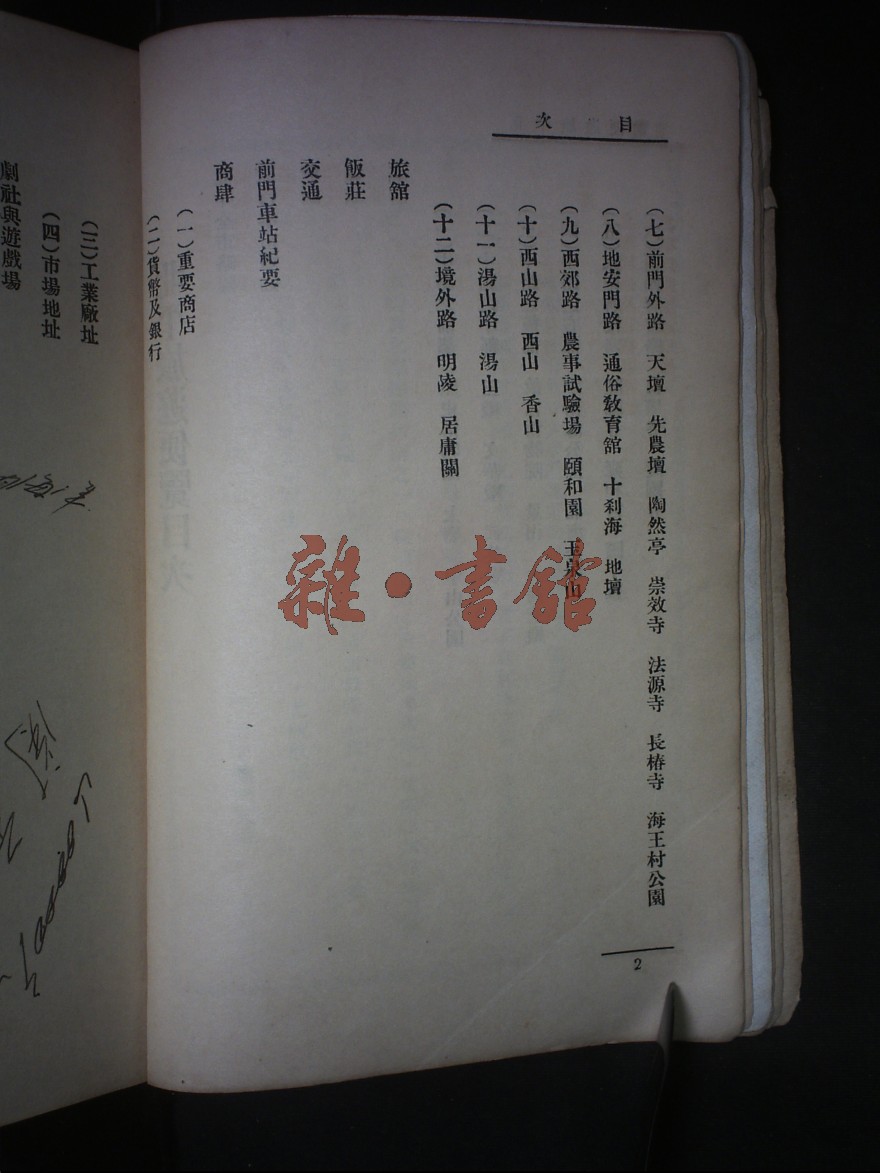 目次
(七)前門外路 天壇 先農壇 陶然亭 崇效寺 法源寺 長椿寺 海王村公園
(八)地安門路 通俗敎育舘 十刹海 地壇
(九)西郊路 農事試驗場 頤和園 玉泉山
(十)西山路 西山 香山
(十一)湯山路 湯山
(十二)境外路 明陵 居庸關
旅舘
飯莊
交通
前門車站紀要
商肆
(一)重要商店
(二)貨幣及銀行
(三)工業廠址
(四)市場地址
劇社與遊戲場
2
雜·書館